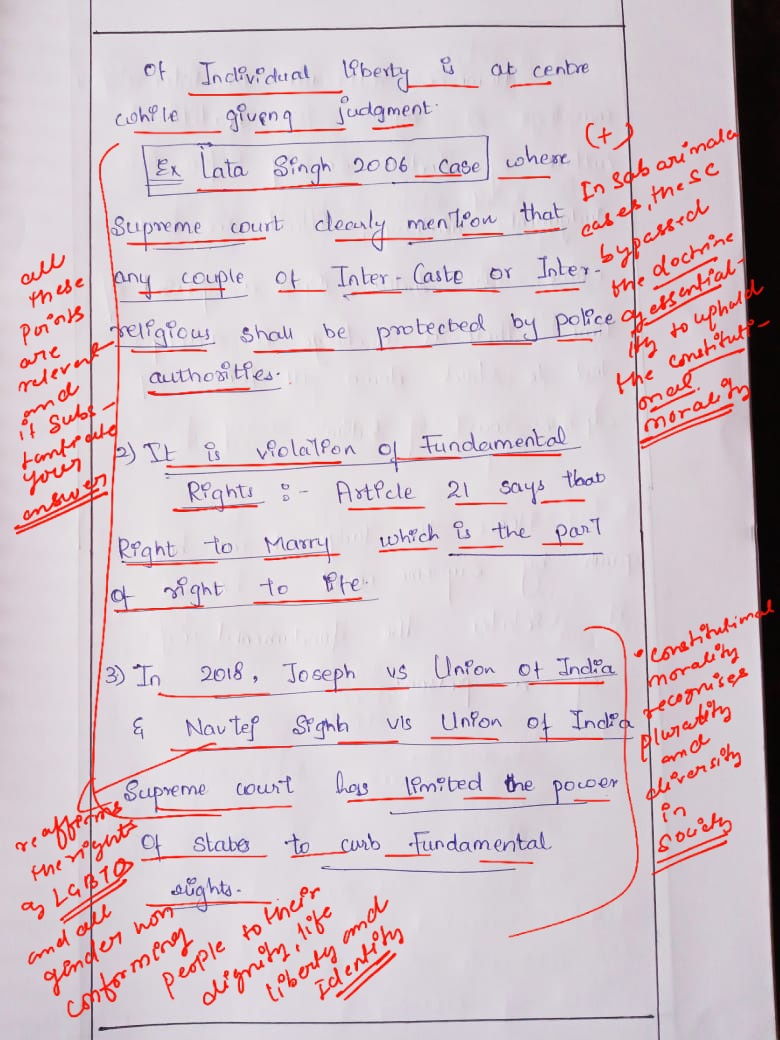 of Individual liberty is at centre
while giveng judgment.
Ex Lata Singh 2006 case where
Supreme court clearly mention that
any couple of Inter-Caste or Inter-
religious shall be protected by police
authorities.
2) It is violation of Fundamental
Rights :- Article 21 says that
Right to Marry which is the part
of right to life.
3) In 2018, Joseph vs Union of India
& Navtej Sighh v/s Union of India
Supreme court has limited the power
of states to curb fundamental
rights.
all
these
points
are
relevent
and
it subs-
tantiate
your
answer
(+)
In Sabarimala
cases, the SC
bypassed
the doctrine
of essential-
ity to uphold
the constituti-
onal
morality
• constitutional
morality
recognises
plurality
and
diversity
in
society
reaffirms
the rights
of LGBTQ
and all
gender non
conforming
people to their
dignity, life
liberty and
Identity